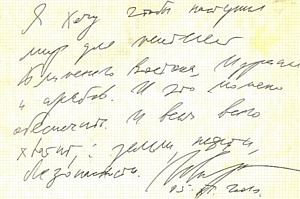 Я хочу чтобы наступил
мир для жителей
Ближнего Востока, Израиля
и арабов. И это можно
обеспечить. И всем всего
хватит,: земли, нефти,
безопасности.
05. 2010.